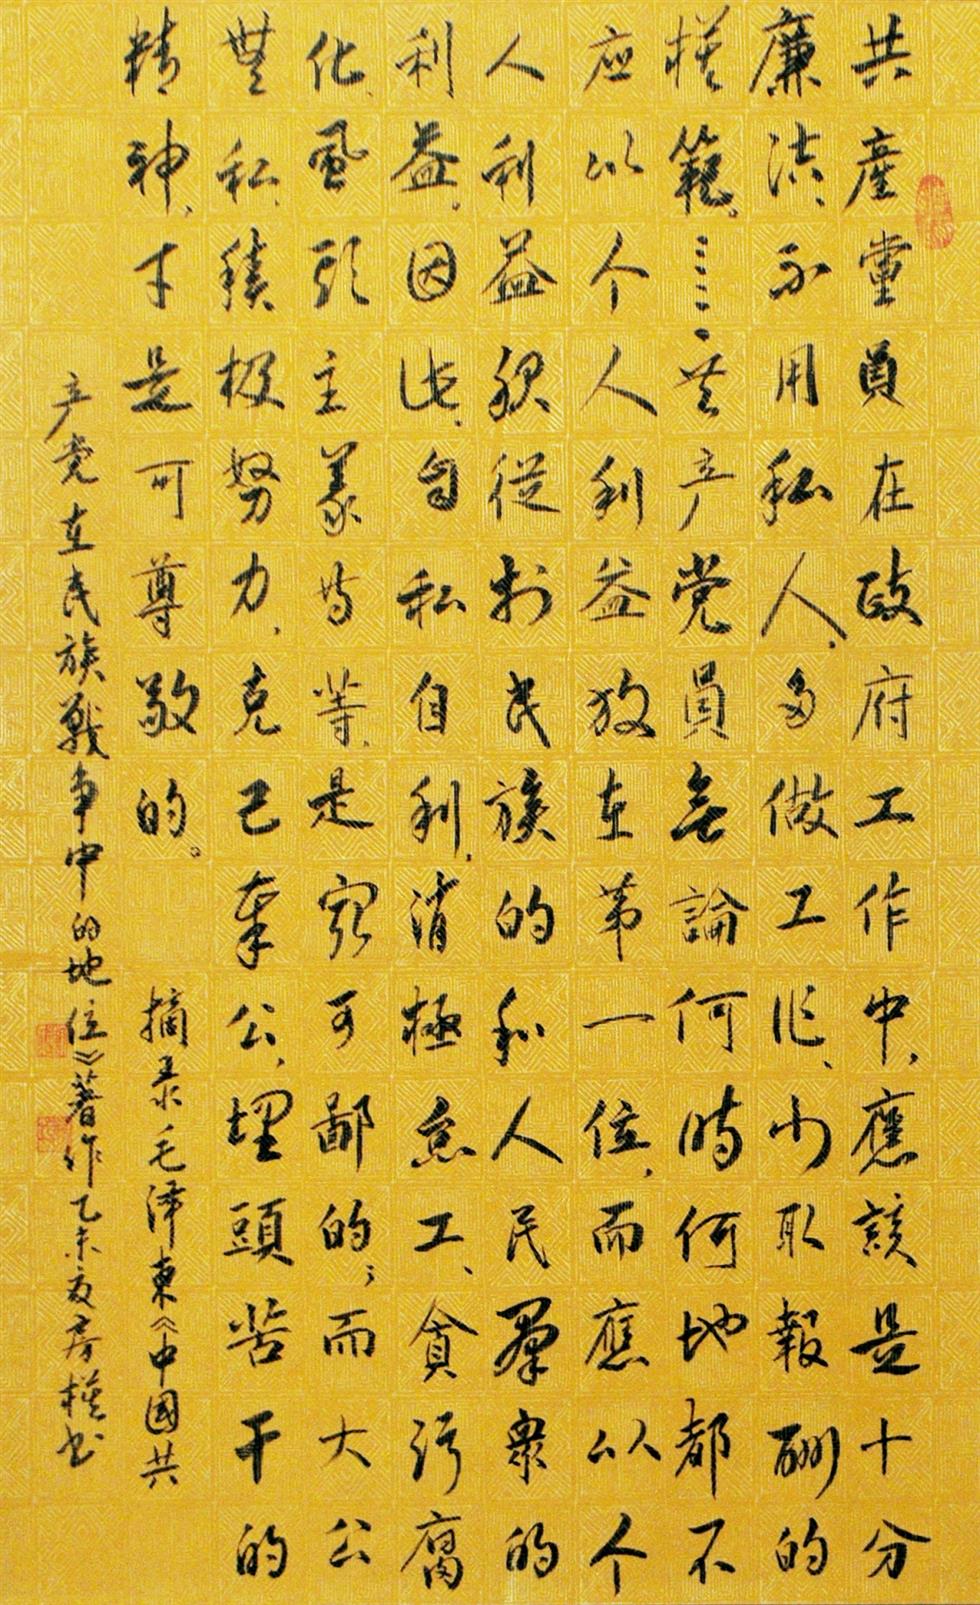 共產黨員在政府工作中，應該是十分
廉洁、不用私人、多做工作、少取報酬的
模範。……共产党員無論何時何地都不
应以个人利益放在第一位，而應以个
人利益服從於民族的和人民羣衆的
利益。因此，自私自利，消極怠工、貪污腐
化，風頭主義等等，是最可鄙的；而大公
無私，積极努力，克己奉公，埋頭苦干的
精神，才是可尊敬的。 摘录毛泽東《中國共
产党在民族戰争中的地位》著作乙未夏房模书